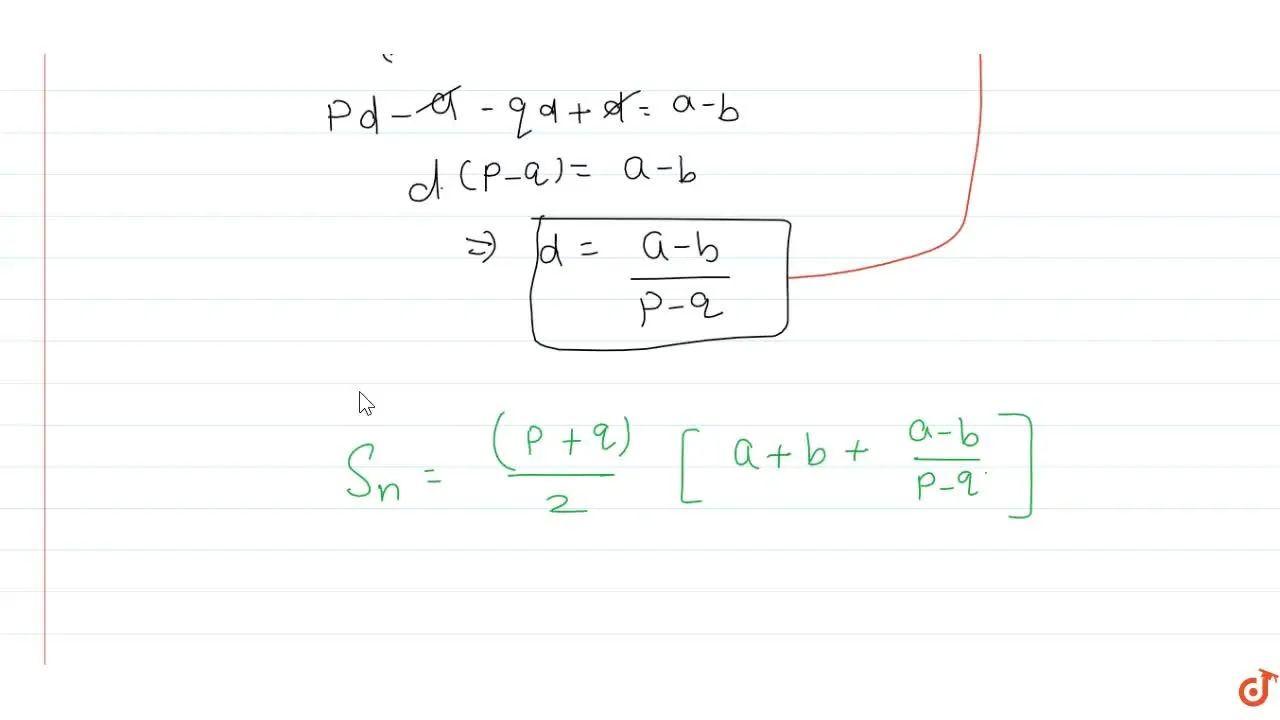 Pd - d - qd + d = a - b
d (P - q) = a - b
⇒ d = \frac{a - b}{P - q}
S_n = \frac{(P + q)}{2} [ a + b + \frac{a - b}{P - q} ]